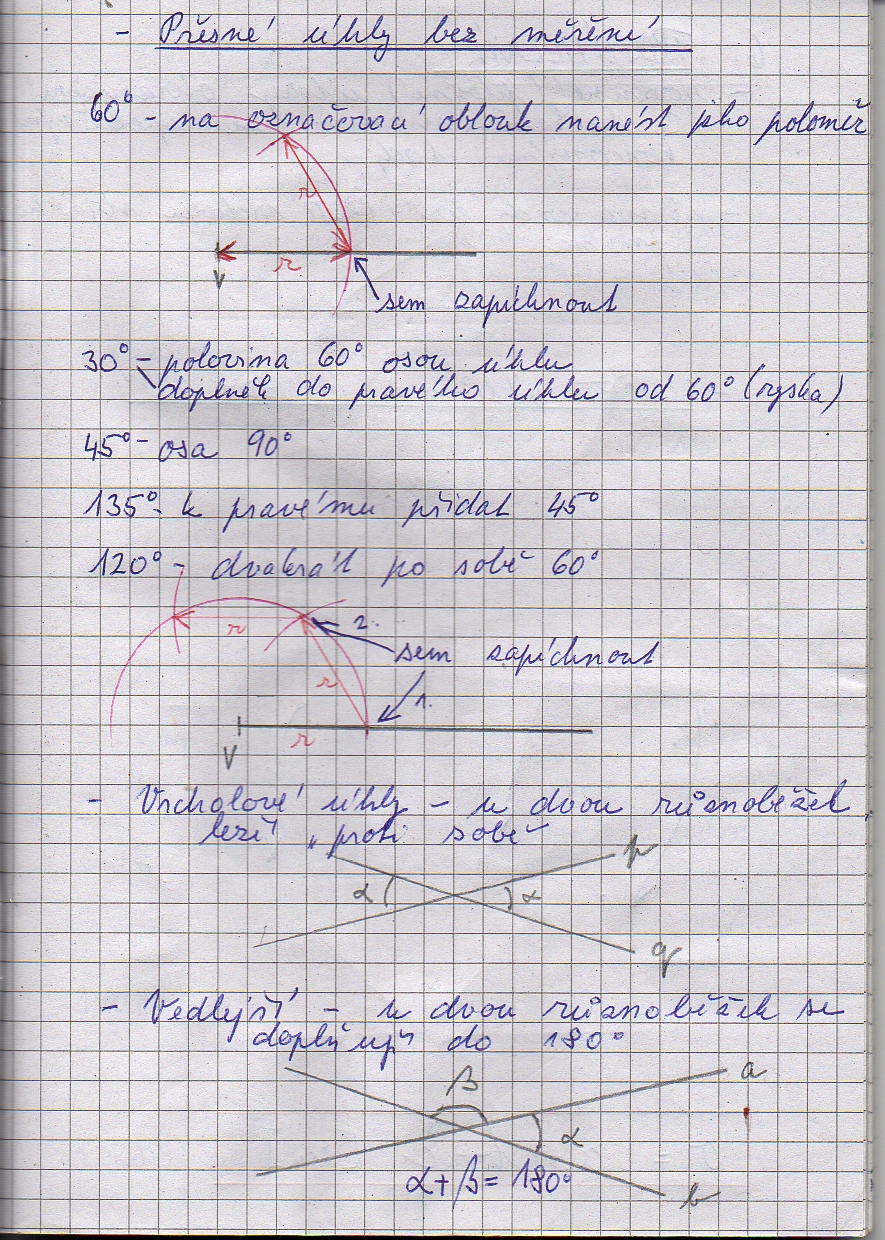 - Přesné úhly bez měření
60° - na označovací oblouk nanést jeho poloměr
r
r
V
sem zapíchnout
30° - polovina 60° osou úhlu
doplněk do pravého úhlu od 60° (ryska)
45° - osa 90°
135° - k pravému přidat 45°
120° - dvakrát po sobě 60°
r
2.
sem zapíchnout
r
1.
r
V
- Vrcholové úhly - u dvou různoběžek
leží „proti sobě“
p
α
α
q
- Vedlejší - u dvou různoběžek se
doplňují do 180°
a
β
α
α+β= 180°
b